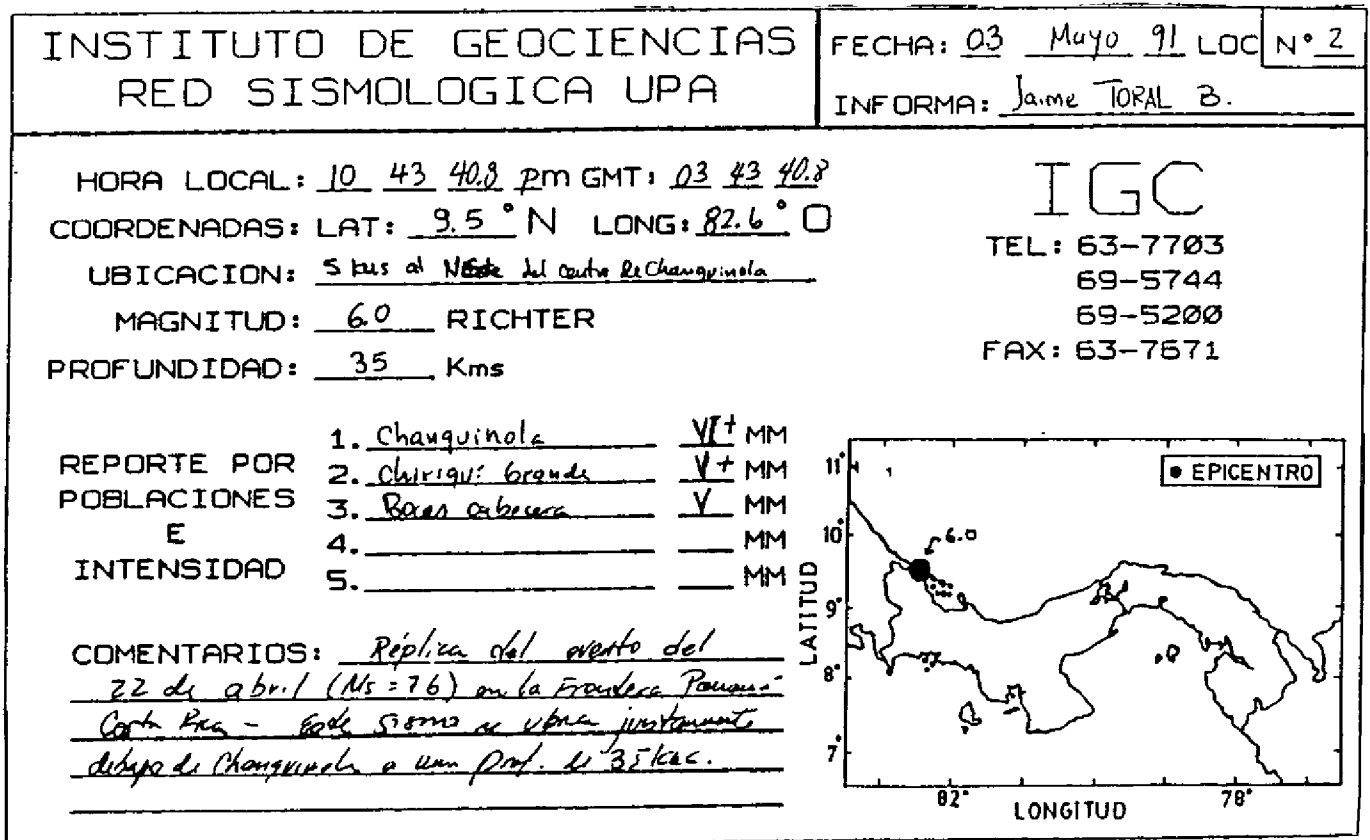 INSTITUTO DE GEOCIENCIAS
RED SISMOLOGICA UPA
FECHA: 03 Mayo 91 LOC N° 2
INFORMA: Jaime TORAL B.
HORA LOCAL: 10 43 40.8 pm GMT: 03 43 40.8
COORDENADAS: LAT: 9.5 ° N LONG: 82.6 ° O
UBICACION: 5 kms al del centro de Changuinola
MAGNITUD: 6.0 RICHTER
PROFUNDIDAD: 35 Kms
IGC
TEL: 63-7703
69-5744
69-5200
FAX: 63-7671
REPORTE POR
POBLACIONES
E
INTENSIDAD
1. Changuinola VI+ MM
2. Chiriquí Grande V+ MM
3. Bocas cabecera V MM
4. MM
5. MM
COMENTARIOS: Réplica del evento del
22 de abril (Ms = 7.6) en la Frontera Panamá
Costa Rica - Este sismo se ubica justamente
debajo de Changuinola a una prof. de 35 kms.
• EPICENTRO
6.0
11°
10°
9°
8°
7°
LATITUD
82° 78°
LONGITUD